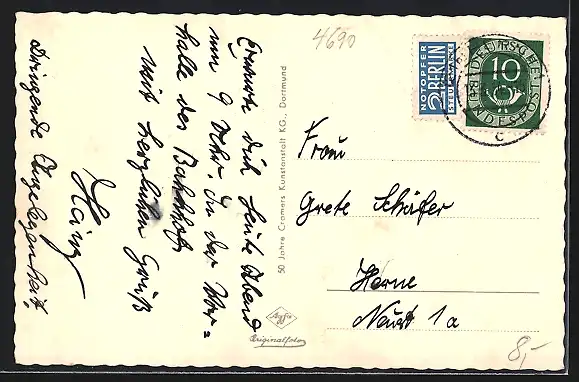 4690
Erwarte dich heute Abend
um 9 Uhr. In der Vor=
halle des Bahnhofs
mit herzlichen Gruß
Heinz
Dringende Angelegenheit.
50 Jahre Cramers Kunstanstalt KG., Dortmund
NOTOPFER
2 BERLIN
STEUERMARKE
DEUTSCHE
10
BUNDESPOST
c
Frau
Grete Schäfer
Herne
Neustr 1a
Agfa
Originalfoto
8,-